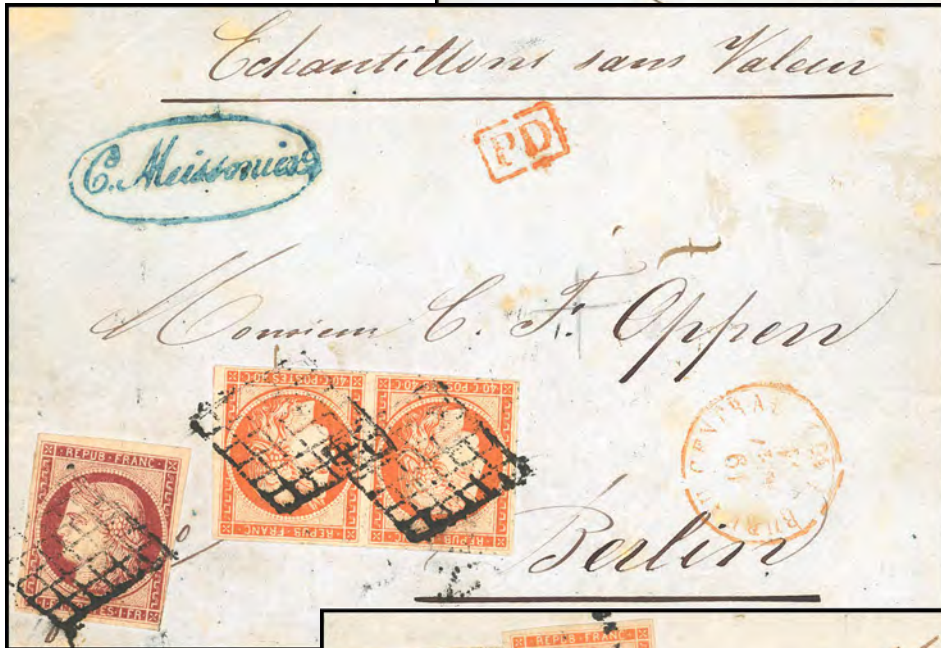 Echantillons sans Valeur
PD
C. Meissonier
Monsieur C. F. Oppen
40 C · POSTES · 40 C
40 C · POSTES · 40 C
REPUB · FRANC
REPUB · FRANC
REPUB · FRANC
1 FR
BUREAU CENTRAL
19
Berlin
REPUB · FRANC